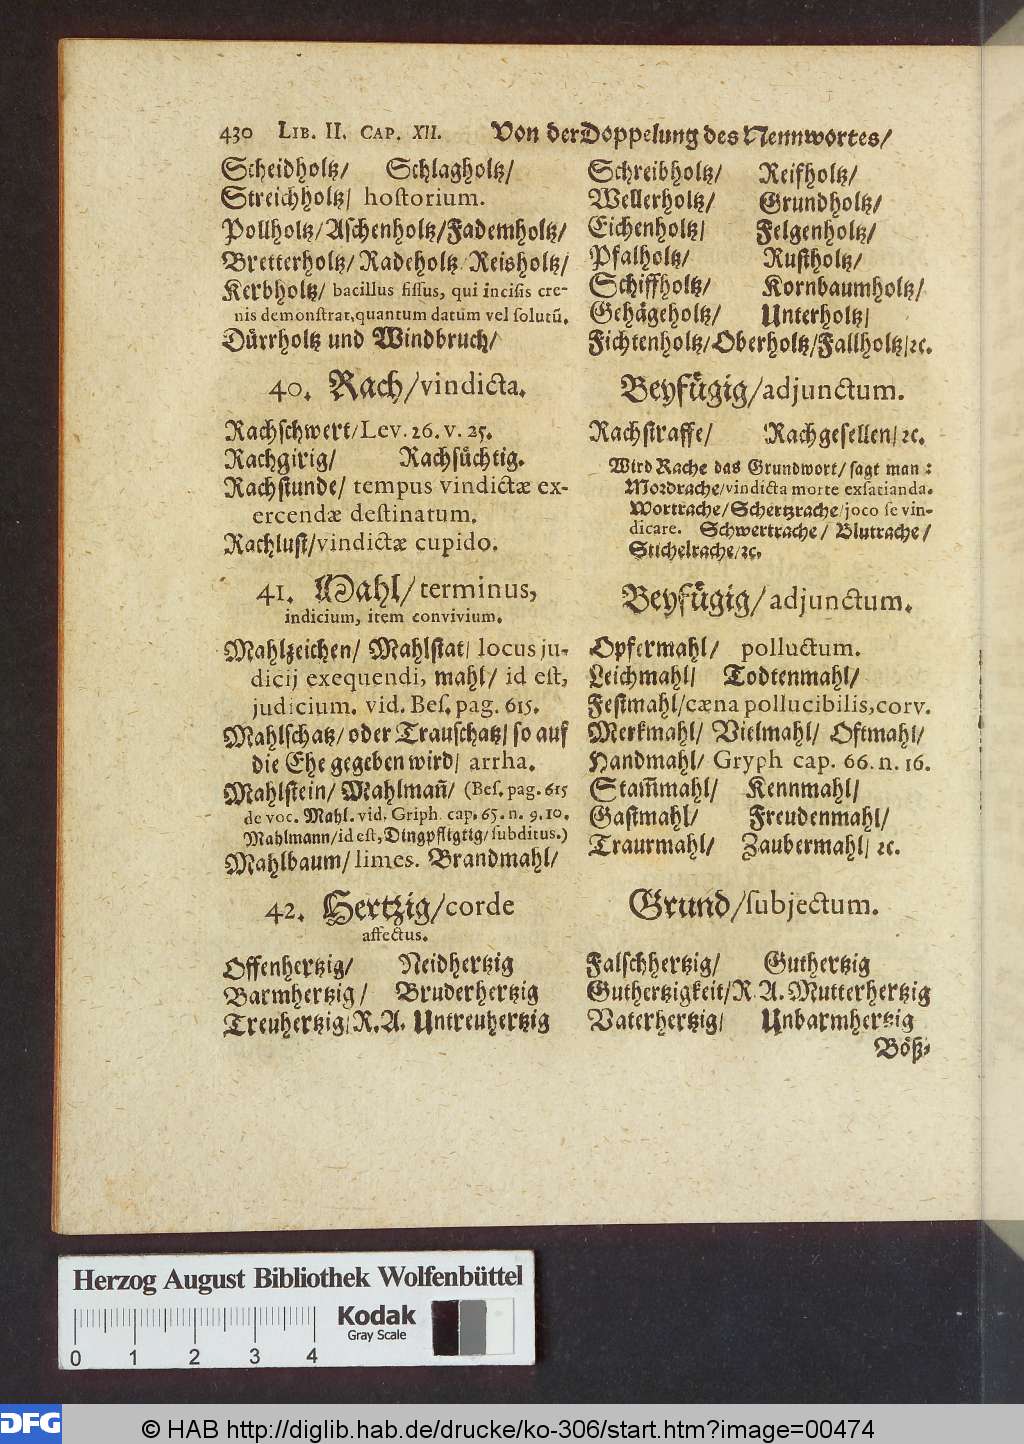 430 LIB. II. CAP. XII. Von der Doppelung des Nennwortes/
Scheidholtz/ Schlagholtz/
Streichholtz/ hostorium.
Pollholtz/Aschenholtz/Fademholtz/
Bretterholtz/Radeholtz/Reisholtz/
Kerbholtz/ bacillus fissus, qui incisis cre-
nis demonstrat, quantum datum vel solutū.
Dürrholtz und Windbruch/
40. Rach/vindicta.
Rachschwert/Lev. 26. v. 25.
Rachgirig/ Rachsüchtig.
Rachstunde/ tempus vindictæ ex-
ercendæ destinatum.
Rachlust/vindictæ cupido.
41. Mahl/terminus,
indicium, item convivium.
Mahlzeichen/ Mahlstat/ locus ju-
dicij exequendi, mahl/ id est,
judicium. vid. Bes. pag. 615.
Mahlschatz/ oder Trauschatz/ so auf
die Ehe gegeben wird/ arrha.
Mahlstein/ Mahlmañ/ (Bes. pag. 615
de voc. Mahl. vid. Griph. cap. 65. n. 9. 10.
Mahlmann/id est, Dingpfligtig/subditus.)
Mahlbaum/limes. Brandmahl/
42. Hertzig/corde
affectus.
Offenhertzig/ Neidhertzig
Barmhertzig/ Bruderhertzig
Treuhertzig/R.A. Untreuhertzig
Schreibholtz/ Reifholtz/
Wellerholtz/ Grundholtz/
Eichenholtz/ Felgenholtz/
Pfalholtz/ Rustholtz/
Schiffholtz/ Kornbaumholtz/
Gehägeholtz/ Unterholtz/
Fichtenholtz/Oberholtz/Fallholtz/ꝛc.
Beyfügig/adjunctum.
Rachstraffe/ Rachgesellen/ꝛc.
Wird Rache das Grundwort/ sagt man:
Mordrache/vindicta morte exsatianda.
Wortrache/Schertzrache/joco se vin-
dicare. Schwertrache/ Blutrache/
Stichelrache/ꝛc.
Beyfügig/adjunctum.
Opfermahl/ polluctum.
Leichmahl/ Todtenmahl/
Festmahl/cæna pollucibilis, corv.
Merkmahl/ Vielmahl/ Oftmahl/
Handmahl/ Gryph cap. 66. n. 16.
Stam̃mahl/ Kennmahl/
Gastmahl/ Freudenmahl/
Traurmahl/ Zaubermahl/ ꝛc.
Grund/subjectum.
Falschhertzig/ Guthertzig
Guthertzigkeit/R.A. Mutterhertzig
Vaterhertzig/ Unbarmhertzig
Böß-
Herzog August Bibliothek Wolfenbüttel
Kodak
Gray Scale
0 1 2 3 4
DFG © HAB http://diglib.hab.de/drucke/ko-306/start.htm?image=00474